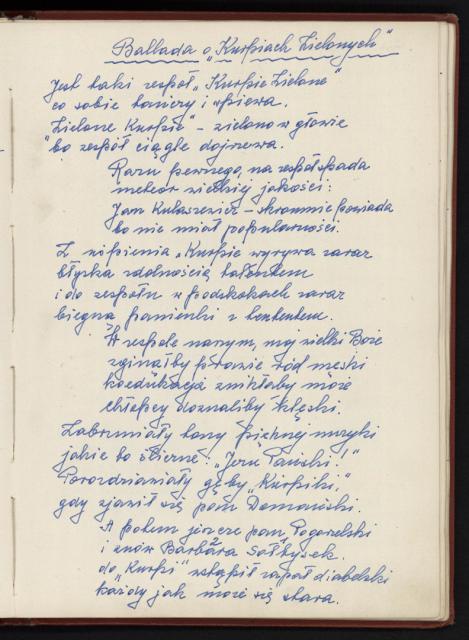 Ballada o „Kurpiach Zielonych"
Jest taki zespół „Kurpie Zielone"
co sobie tańczy i śpiewa.
„Zielone Kurpie" – zielono w głowie
bo zespół ciągle dojrzewa.
Razu pewnego, na zespół spada
meteor wielkiej jakości:
Jan Kulaszewicz – skromnie powiada
bo nie miał popularności.
Z uśpienia „Kurpie wyrywa zaraz
błyska zdolnością talentem
i do zespołu w podskokach zaraz
biegną panienki z
A zespole naszym, mój wielki Boże
zginąłby prawie ród męski
koedukacja znikłaby może
chłopcy doznaliby klęski.
Zabrzmiały tony pięknej muzyki
jakie to śliczne: „Jeru Pański!"
Porozdziawiały gęby „Kurpiki"
gdy zjawił się pan Domański.
A potem jeszcze pan Pogorzelski
i znów Barbara Sołtysek.
do „Kurpi" wstąpił zapał diabelski
każdy jak może się stara.